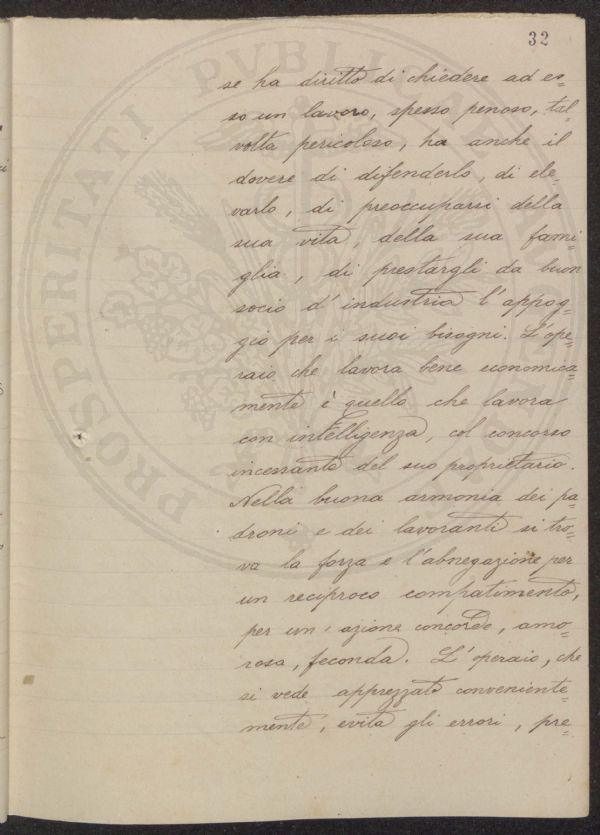 32
se ha diritto di chiedere ad es=
so un lavoro, spesso penoso, tal=
volta pericoloso, ha anche il
dovere di difenderlo, di ele=
varlo, di preoccuparsi della
sua vita, della sua fami=
glia, di prestargli da buon
socio d'industria l'appog=
gio per i suoi bisogni. L'ope=
raio che lavora bene economica=
mente è quello che lavora
con intelligenza, col concorso
incessante del suo proprietario.
Nella buona armonia dei pa=
droni e dei lavoranti si tro=
va la forza e l'abnegazione per
un reciproco compatimento,
per un'azione concorde, amo=
rosa, feconda. L'operaio, che
si vede apprezzato conveniente=
mente, evita gli errori, pre=
PROSPERITATI PVBLICAE